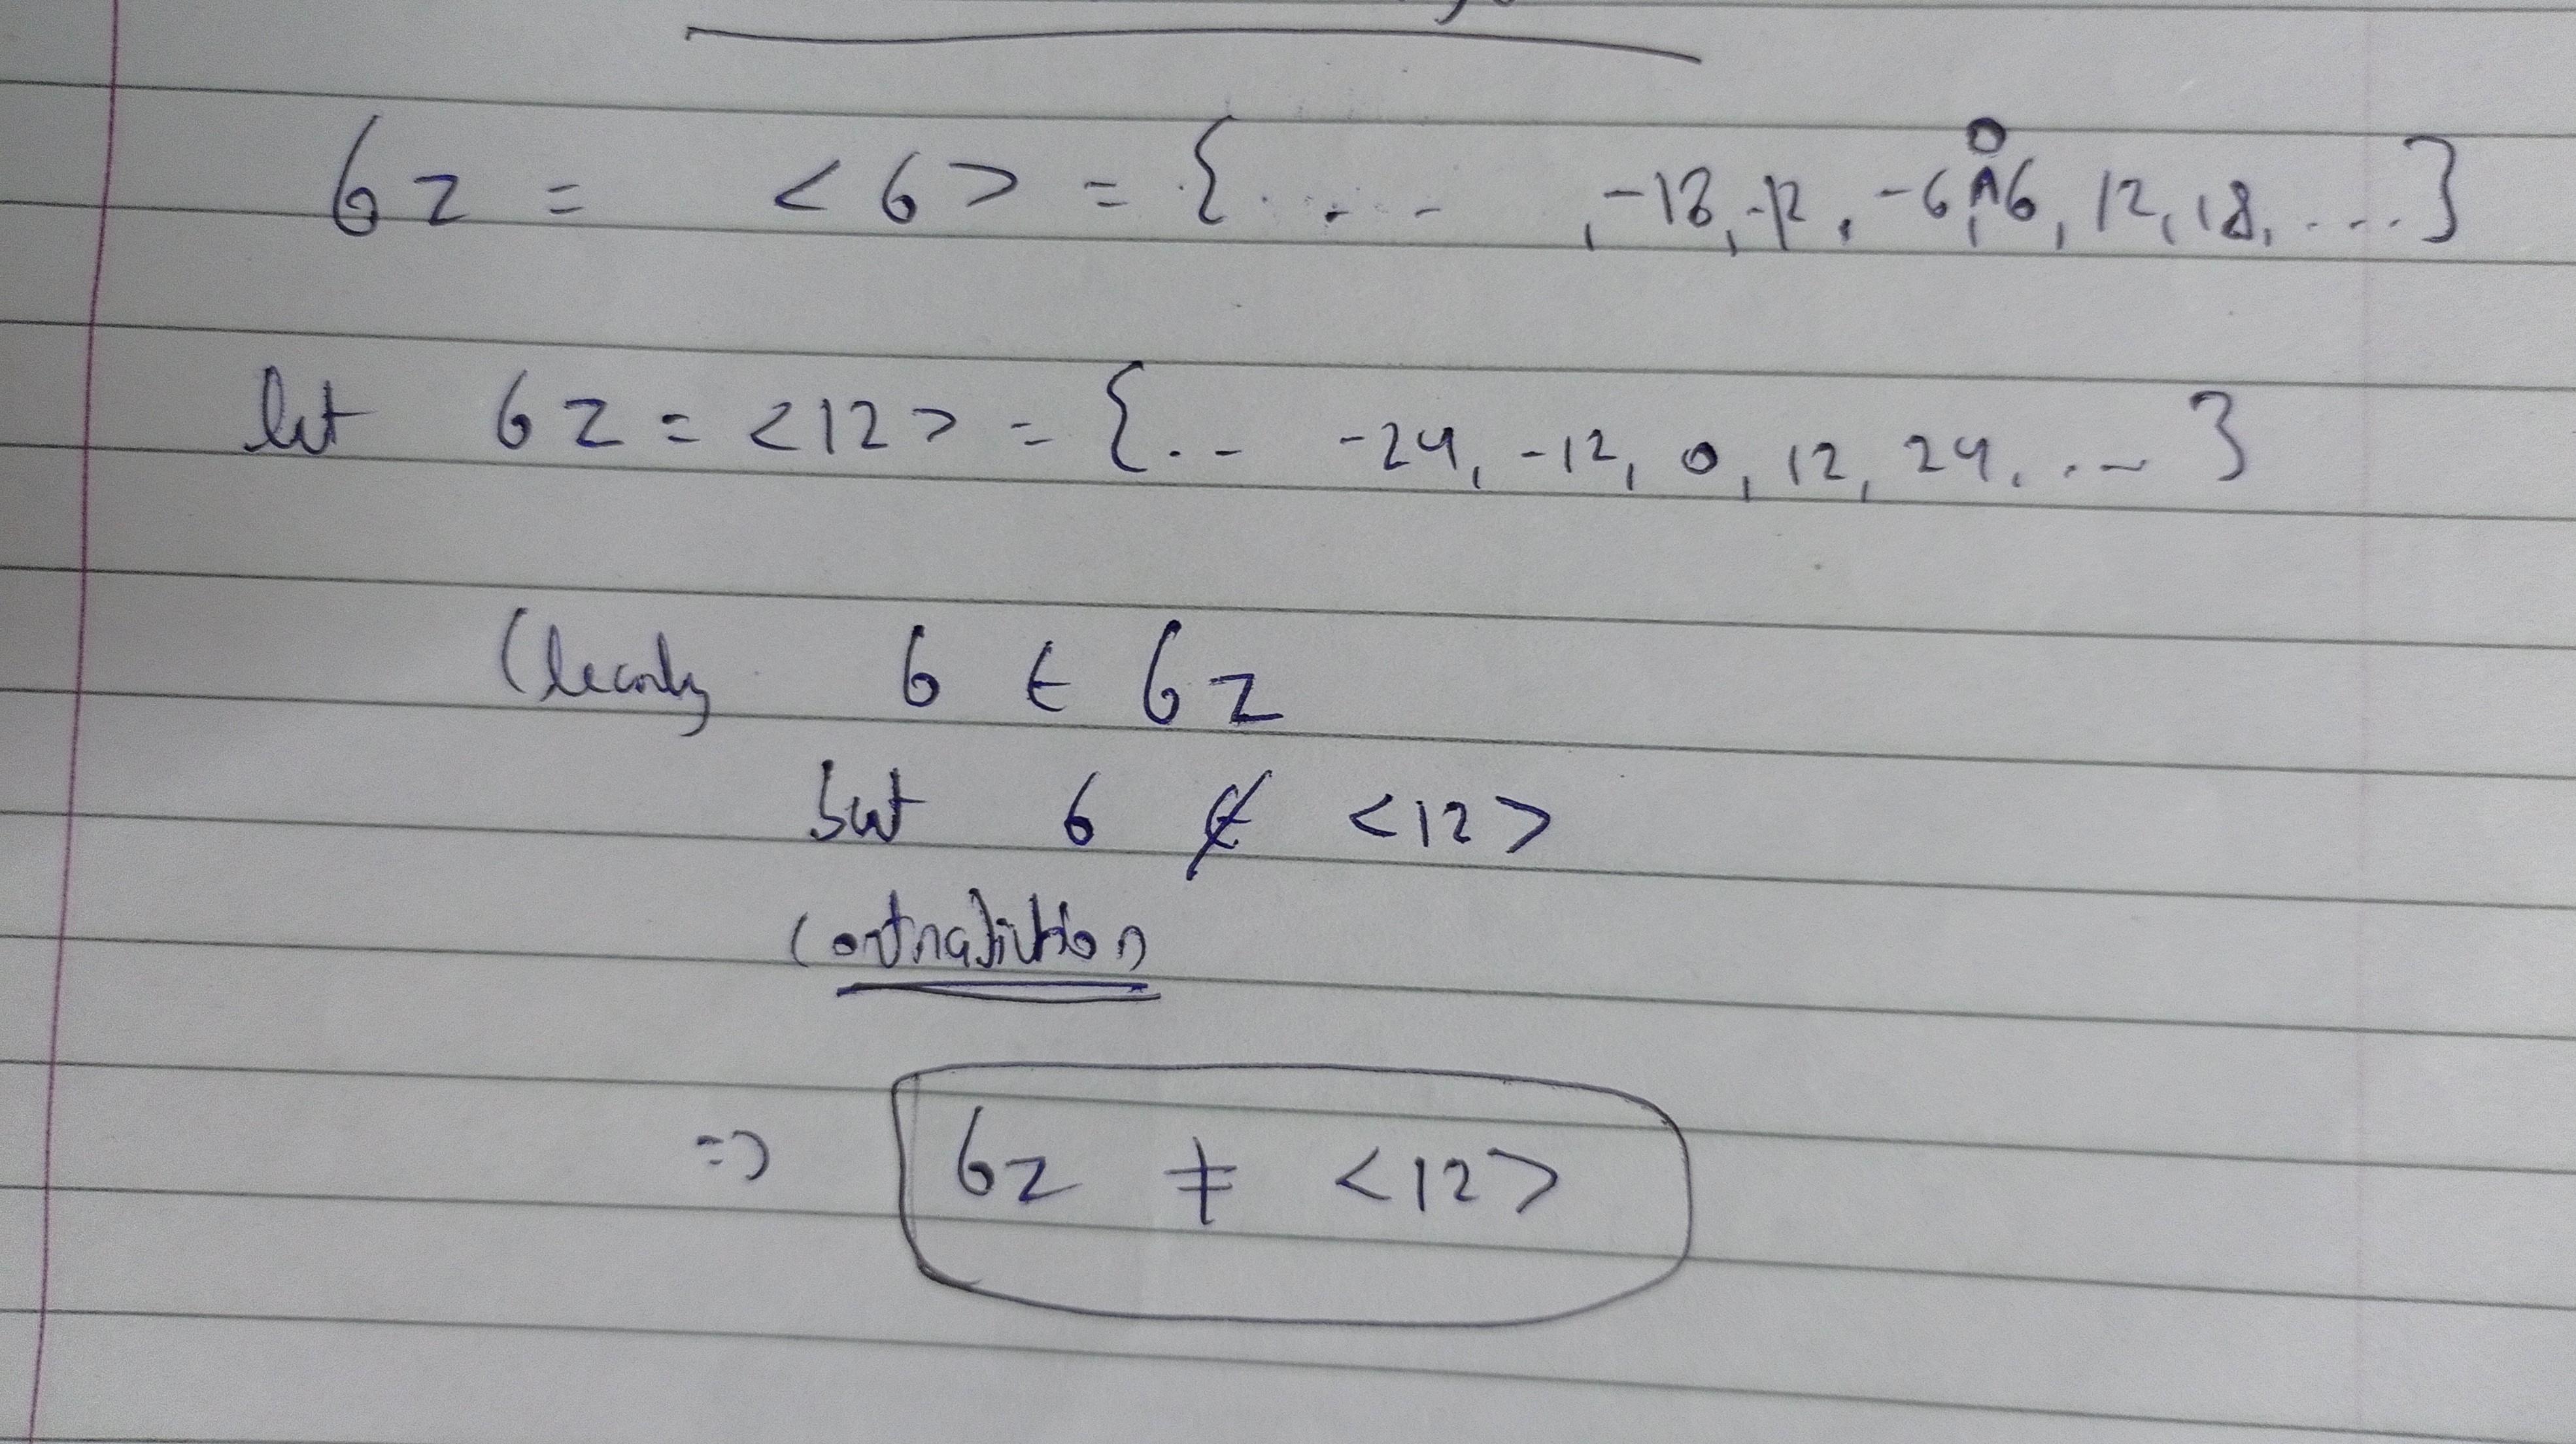 6z = <6> = {. . . - , -18, -12, -6, 0, 6, 12, 18, ....}
let 6z = <12> = {.. -24, -12, 0, 12, 24, ... }
Clearly 6 ∈ 6z
but 6 ∉ <12>
Contradiction
=> 6z ≠ <12>